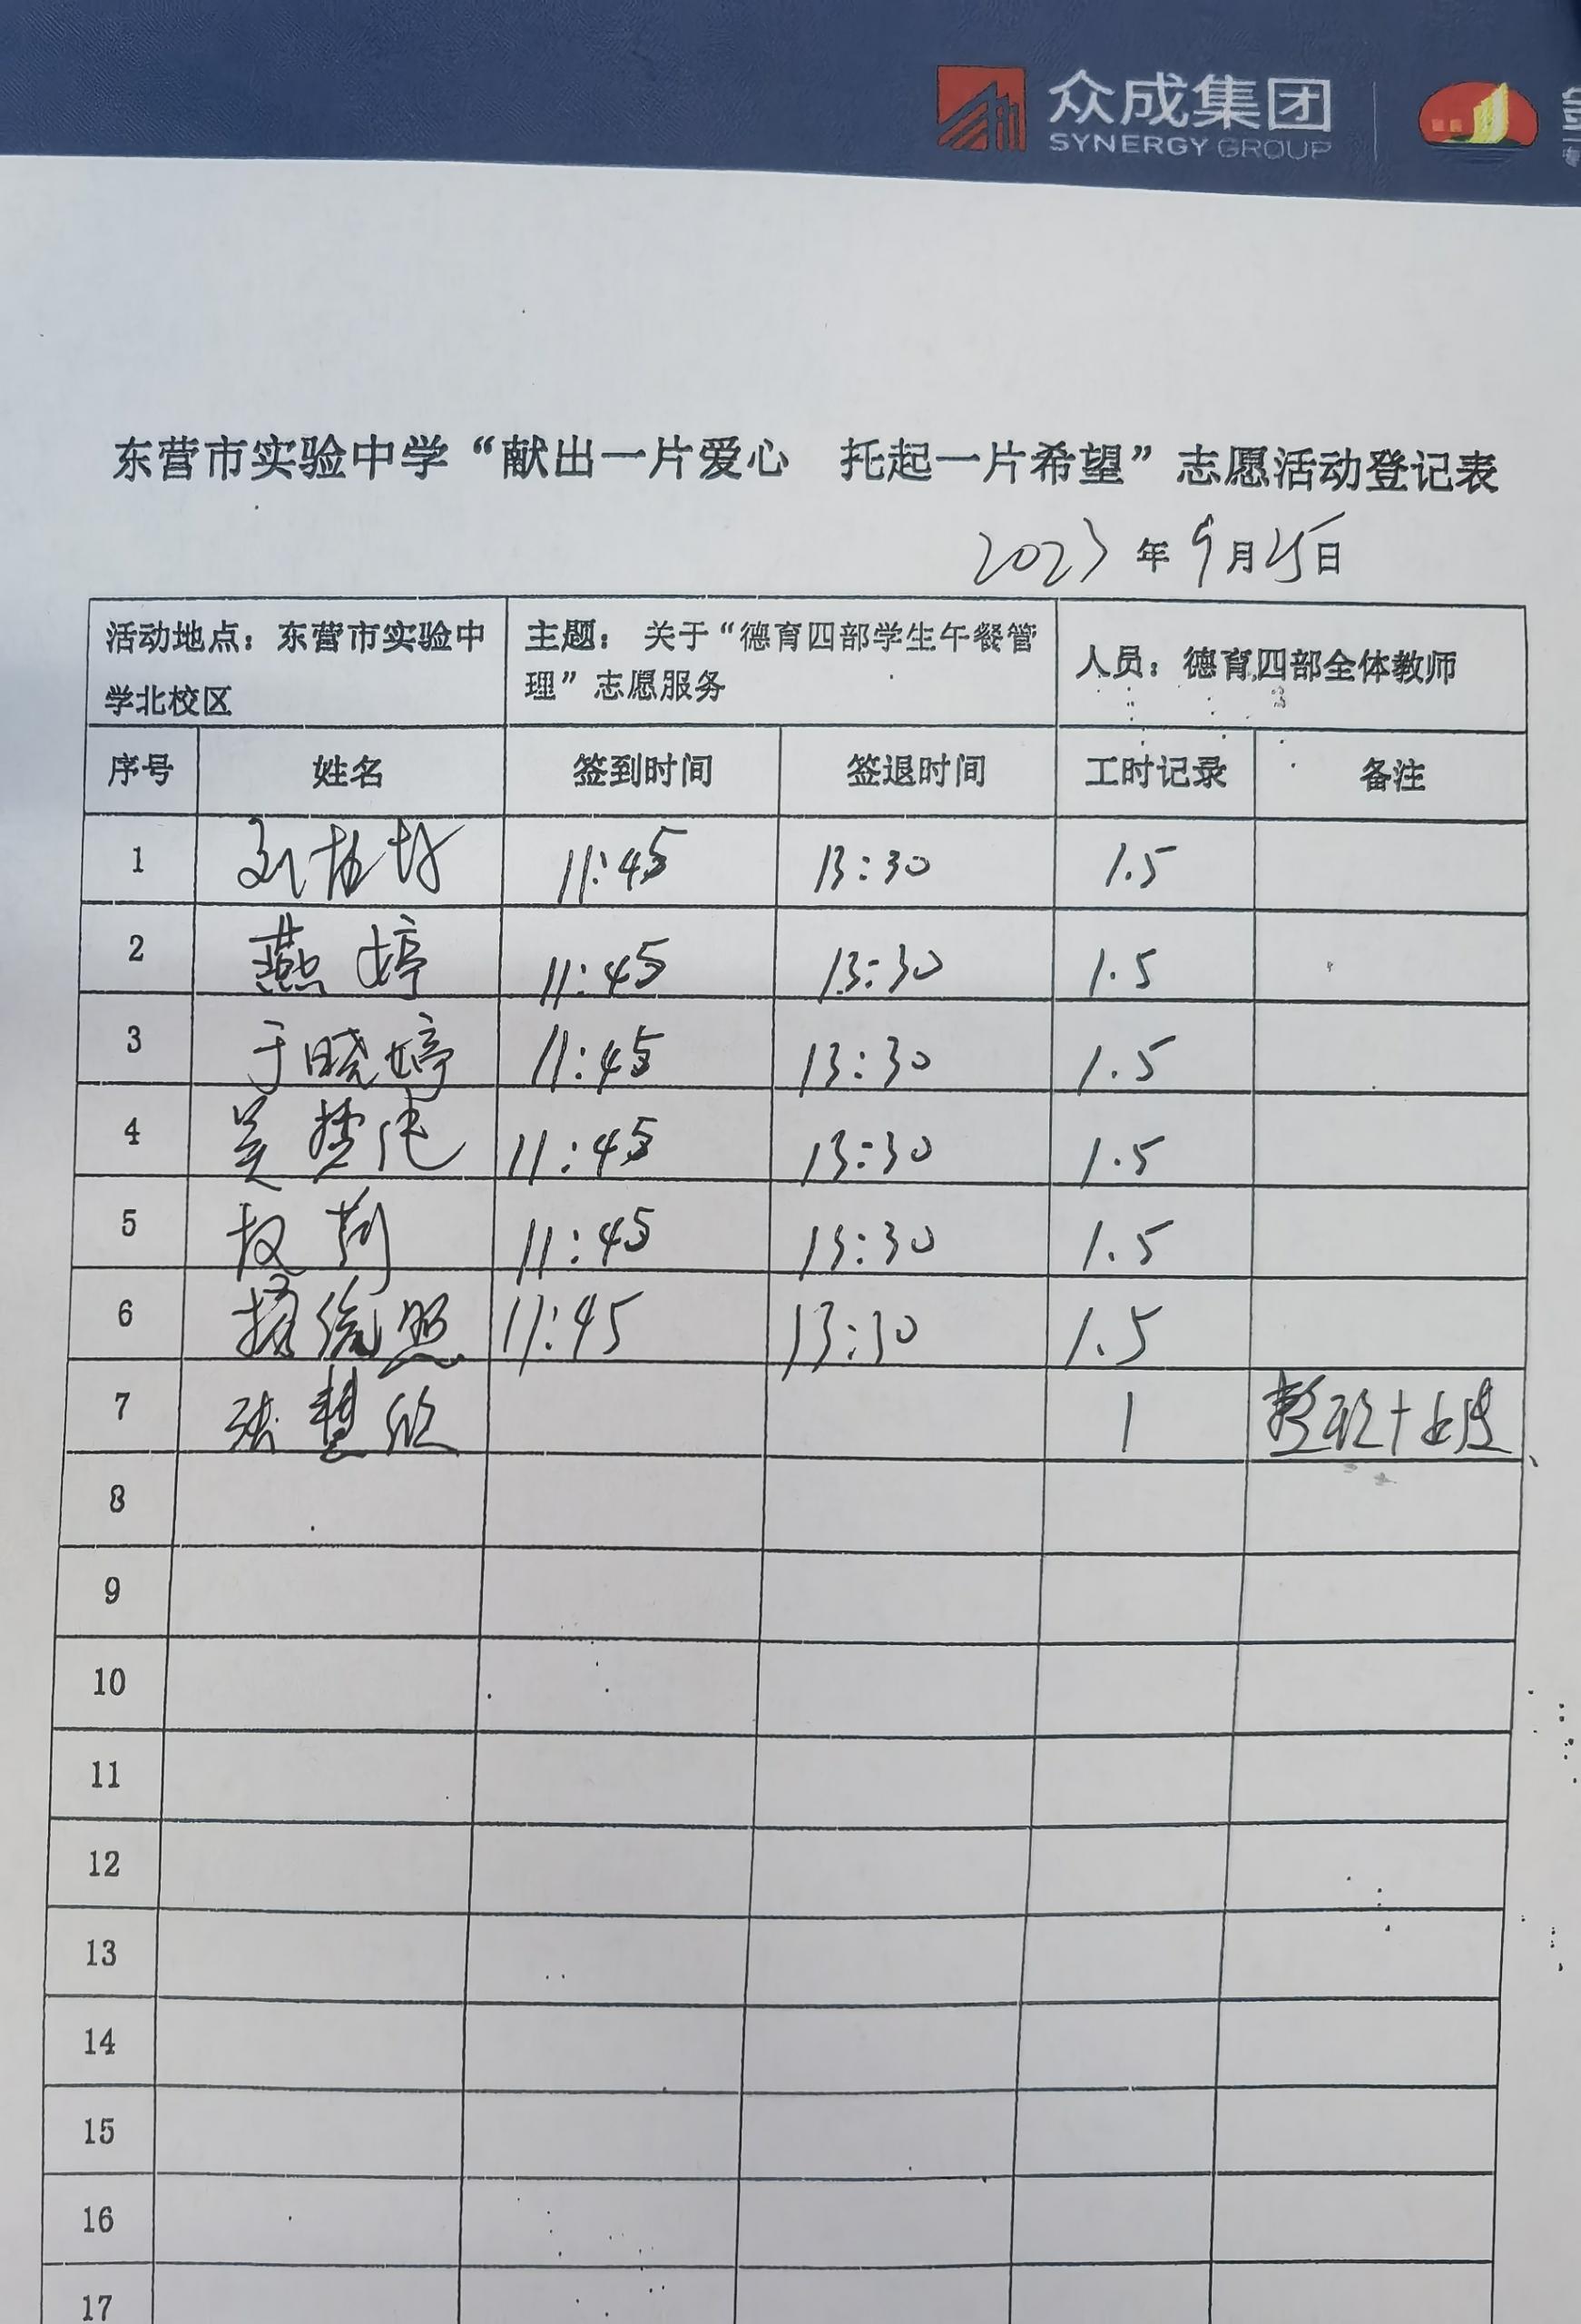 众成集团
SYNERGY GROUP
东营市实验中学“献出一片爱心 托起一片希望”志愿活动登记表
2023年9月25日
活动地点：东营市实验中学北校区 主题：关于“德育四部学生午餐管理”志愿服务 人员：德育四部全体教师
序号 姓名 签到时间 签退时间 工时记录 备注
1 11:45 13:30 1.5
2 燕婷 11:45 13:30 1.5
3 于晓婷 11:45 13:30 1.5
4 吴 11:45 13:30 1.5
5 11:45 13:30 1.5
6 11:45 13:30 1.5
7 张慧欣 1
8
9
10
11
12
13
14
15
16
17